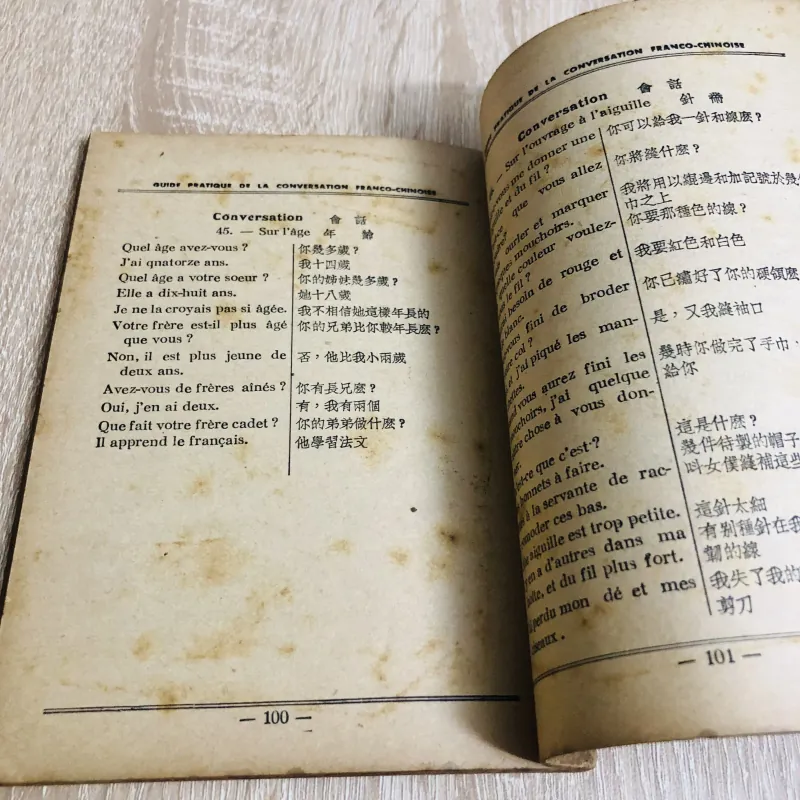 GUIDE PRATIQUE DE LA CONVERSATION FRANCO-CHINOISE
Conversation 會話
45. — Sur l'âge 年齡
Quel âge avez-vous ? 你幾多歲?
J'ai qnatorze ans. 我十四歲
Quel âge a votre soeur ? 你的姊妹幾多歲?
Elle a dix-huit ans. 她十八歲
Je ne la croyais pas si âgée. 我不相信她這樣年長的
Votre frère est-il plus âgé 你的兄弟比你較年長麽?
que vous ?
Non, il est plus jeune de 否,他比我小兩歲
deux ans.
Avez-vous de frères aînés ? 你有長兄麽?
Oui, j'en ai deux. 有,我有兩個
Que fait votre frère cadet ? 你的弟弟做什麽?
Il apprend le français. 他學習法文
— 100 —
PRATIQUE DE LA CONVERSATION FRANCO-CHINOISE
Conversation 會話
— Sur l'ouvrage à l'aiguille 針黹
vous me donner une 你可以給我一針和線麽?
et du fil ?
que vous allez 你將縫什麽?
ourler et marquer 我將用以緄邊和加記號於幾
mouchoirs. 巾之上
quelle couleur voulez- 你要那種色的線?
le fil ?
besoin de rouge et 我要紅色和白色
blanc.
vous fini de broder 你已繡好了你的硬領麽
col ?
et j'ai piqué les man- 是,又我縫袖口
vous aurez fini les 幾時你做完了手巾,
mouchoirs, j'ai quelque 給你
chose à vous don-
ce que c'est-? 這是什麽?
bonnets à faire. 幾件待製的帽子
à la servante de rac- 叫女僕縫補這些
ces bas.
aiguille est trop petite. 這針太細
en a d'autres dans ma 有别種針在我
et du fil plus fort. 韌的線
perdu mon dé et mes 我失了我的
剪刀
— 101 —